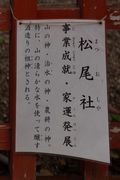 松尾社
まつおしゃ
事業成就・家運発展
山の神・治水の神・農耕の神。
特に、山の清らかな水を使って醸す
酒造りの祖神とされる。